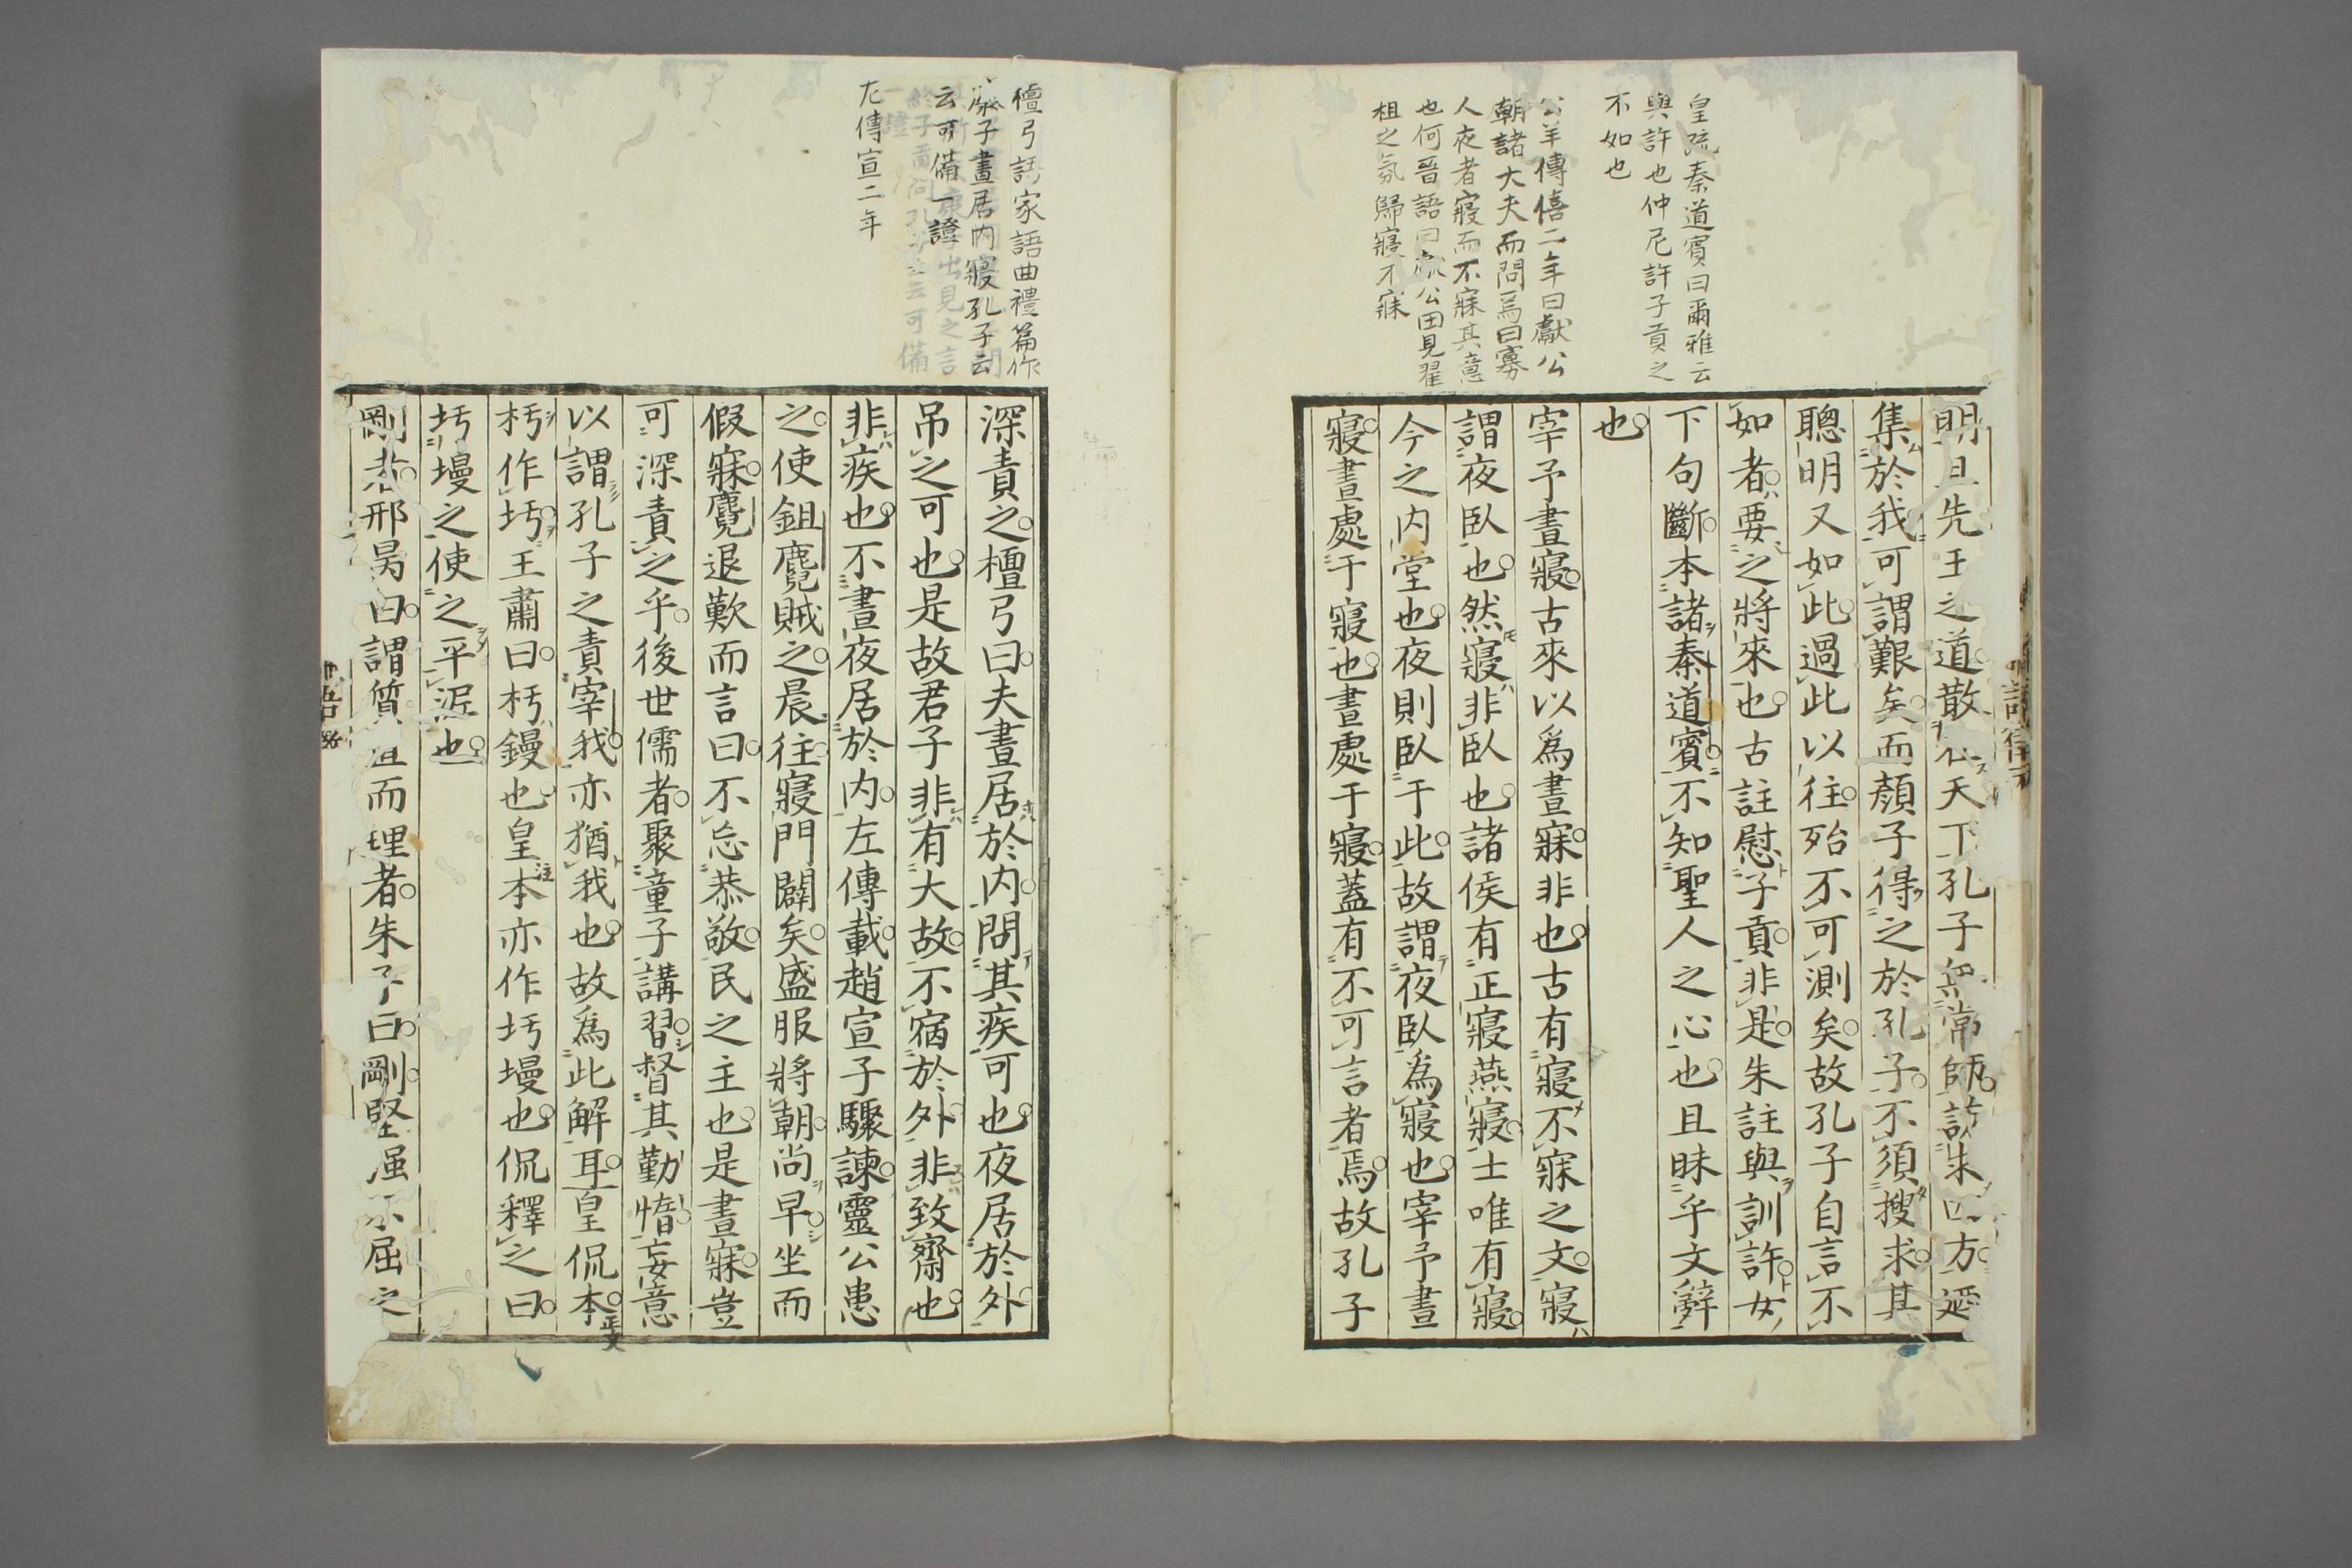 皇疏秦道賓曰爾雅云
與許也仲尼許子貢之
不如也
公羊傳僖二年曰獻公
朝諸大夫而問焉曰寡
人夜者寢而不寐其意
也何晉語曰公田見翟
柤之氛歸寢不寐
明且先王之道散天下孔子無常師訪求四方
集於我可謂艱矣而顏子得之於孔子不須搜求其
聰明又如此過此以往殆不可測矣故孔子自言不
如者要之將來也古註慰子貢非是朱註與訓許女
下句斷本諸秦道賓不知聖人之心也且昧乎文辭
也
宰予晝寢古來以爲晝寐非也古有寢不寐之文寢
謂夜臥也然寢非臥也諸侯有正寢燕寢士唯有寢
今之内堂也夜則臥于此故謂夜臥爲寢也宰予晝
寢晝處于寢也晝處于寢蓋有不可言者焉故孔子
檀弓語家語曲禮篇作
康子晝居内寢孔子云
云可備一證
左傳宣二年
深責之檀弓曰夫晝居於内問其疾可也夜居於外
吊之可也是故君子非有大故不宿於外非致齋也
非疾也不晝夜居於内左傳載趙宣子驟諫靈公患
之使鉏麑賊之晨往寢門闢矣盛服將朝尚早坐而
假寐麑退歎而言曰不忘恭敬民之主也是晝寐豈
可深責之乎後世儒者聚童子講習督其勤惰妄意
以謂孔子之責宰我亦猶我也故爲此解耳皇侃本正文
杇作圬王肅曰杇鏝也皇本注亦作圬墁也侃釋之曰
圬墁之使之平泥也
剛者邢昺曰謂質直而理者朱子曰剛堅强不屈之